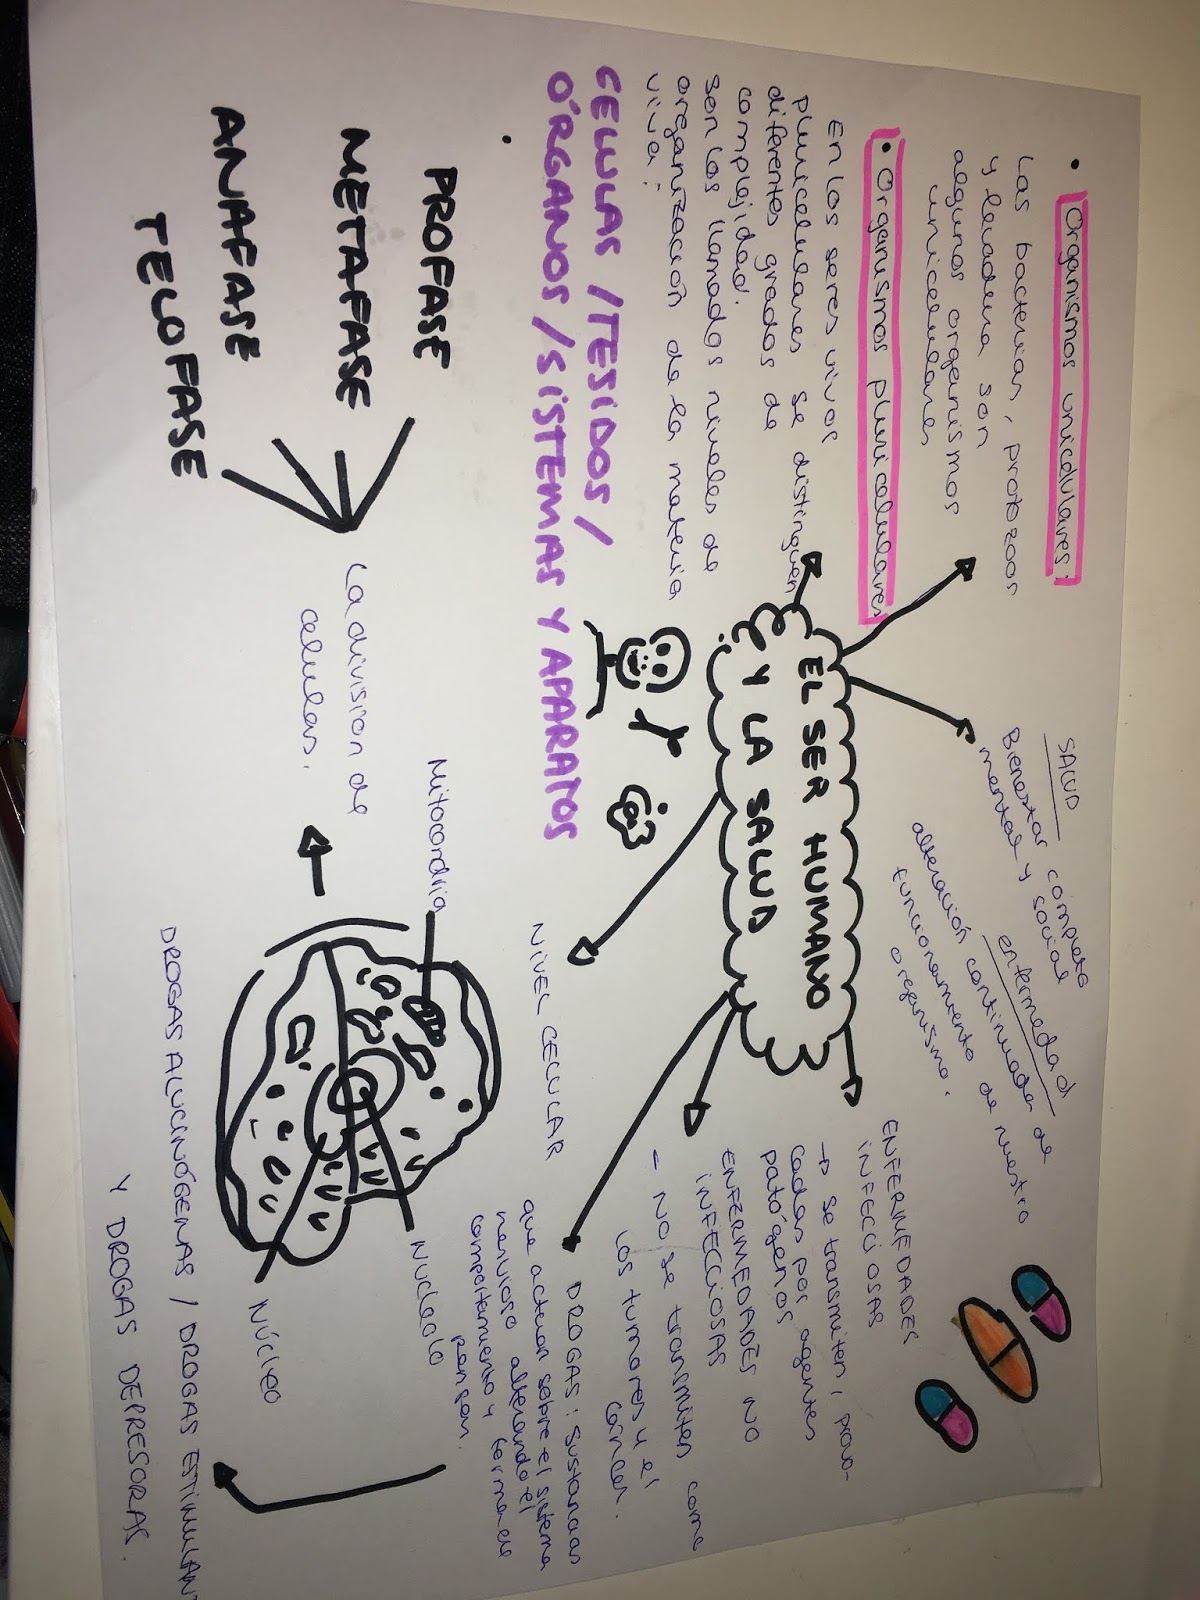 EL SER HUMANO
Y LA SALUD
• Organismos unicelulares:
Las bacterias, protozoos
y levadura son
algunos organismos
unicelulares
• Organismos pluricelulares
En los seres vivos
pluricelulares se distinguen
diferentes grados de
complejidad.
Son los llamados niveles de
organización de la materia
viva:
CELULAS / TESIDOS /
ÓRGANOS / SISTEMAS Y APARATOS
SALUD
Bienestar completo
mental y social
enfermedad
alteración continuada de
funcionamiento de nuestro
organismo.
ENFERMEDADES
INFECCIOSAS
→ se transmiten, provo-
cadas por agentes
patógenos
ENFERMEDADES NO
INFECCIOSAS
- NO se transmiten como
los tumores y el
Cáncer.
DROGAS: Sustancias
que actúan sobre el sistema
nervioso alterando el
comportamiento y forma de
pensar.
DROGAS ALUCINÓGENAS / DROGAS ESTIMULANT
Y DROGAS DEPRESORAS.
NIVEL CELULAR
Mitocondria
Nucleolo
Núcleo
La division de
celulas.
PROFASE
METAFASE
ANAFASE
TELOFASE